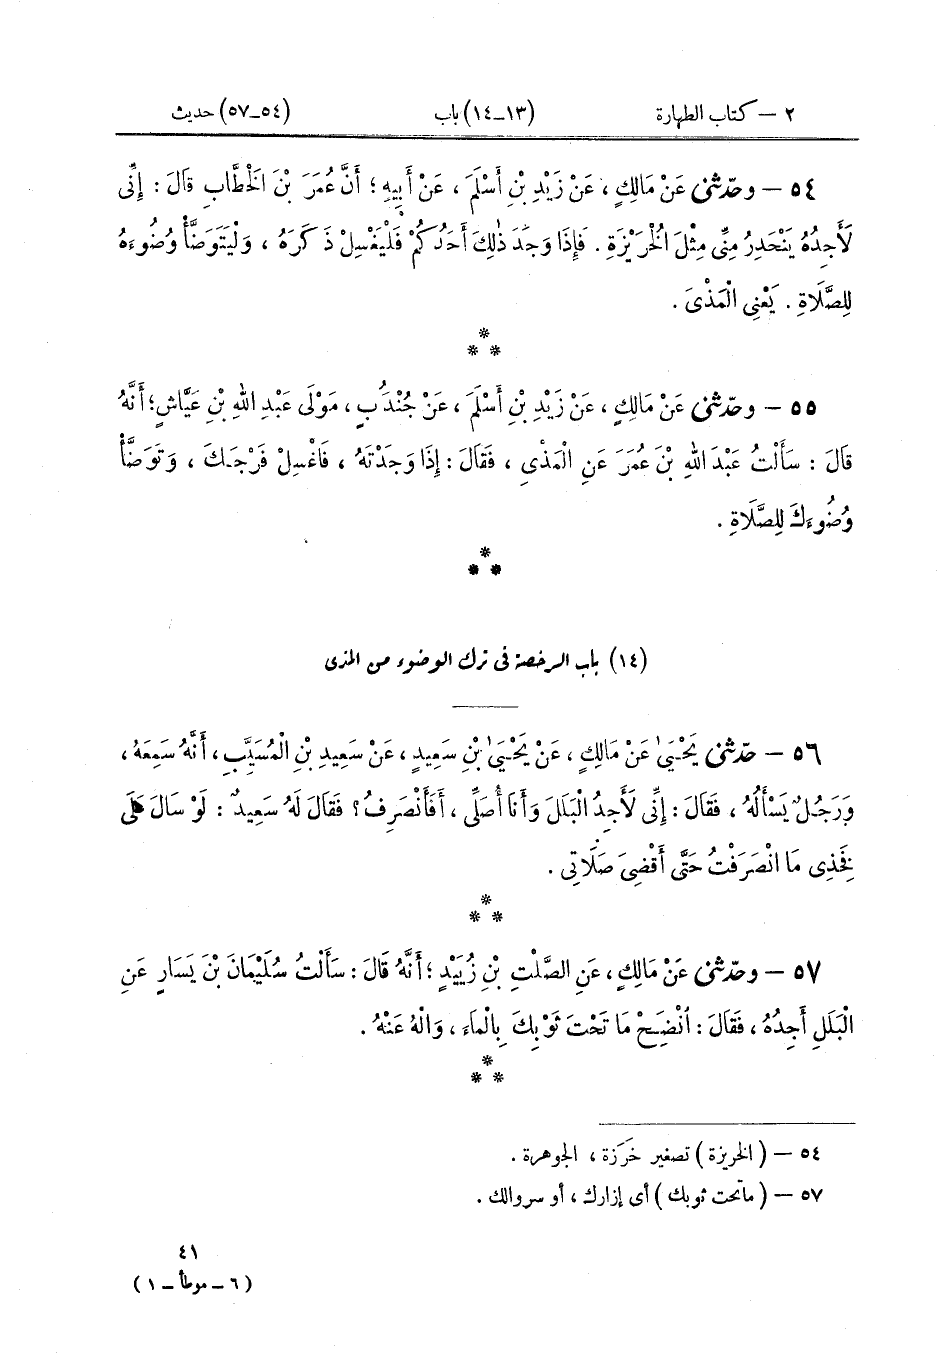 ٢ – كتاب الطهارة (١٣–١٤) باب (٥٤–٥٧) حديث
٥٤ – وحدّثنى عَنْ مَالِكٍ ، عَنْ زَيْدِ بْنِ أَسْلَمَ ، عَنْ أَبِيهِ ؛ أَنَّ عُمَرَ بْنَ الْخَطَّابِ قَالَ : إِنِّى
لَأَجِدُهُ يَنْحَدِرُ مِنِّى مِثْلَ الْخُرَيْزَةِ . فَإِذَا وَجَدَ ذٰلِكَ أَحَدُكُمْ فَلْيَغْسِلْ ذَكَرَهُ ، وَلْيَتَوَضَّأْ وُضُوءَهُ
لِلصَّلَاةِ . يَعْنِى الْمَذْىَ .
*
* *
٥٥ – وحدّثنى عَنْ مَالِكٍ ، عَنْ زَيْدِ بْنِ أَسْلَمَ ، عَنْ جُنْدَُبٍ ، مَوْلَى عَبْدِ اللهِ بْنِ عَيَّاشٍ؛ أَنَّهُ
قَالَ : سَأَلْتُ عَبْدَ اللهِ بْنَ عُمَرَ عَنِ الْمَذْىِ ، فَقَالَ : إِذَا وَجَدْتَهُ ، فَاغْسِلْ فَرْجَكَ ، وَتَوَضَّأْ
وُضُوءَكَ لِلصَّلَاةِ .
*
* *
(١٤) باب الرخصة فى ترك الوضوء من المذى
٥٦ – حدّثنى يَحْيَىٰ عَنْ مَالِكٍ ، عَنْ يَحْيَىٰ بْنِ سَعِيدٍ ، عَنْ سَعِيدِ بْنِ الْمُسَيَّبِ ، أَنَّهُ سَمِعَهُ ،
وَرَجُلٌ يَسْأَلُهُ ، فَقَالَ : إِنِّى لَأَجِدُ الْبَلَلَ وَأَنَا أُصَلِّى ، أَفَأَنْصَرِفُ ؟ فَقَالَ لَهُ سَعِيدٌ : لَوْ سَالَ عَلَى
فَخِذِى مَا انْصَرَفْتُ حَتَّى أَقْضِىَ صَلَاتِى .
*
* *
٥٧ – وحدّثنى عَنْ مَالِكٍ ، عَنِ الصَّلْتِ بْنِ زُيَيْدٍ ؛ أَنَّهُ قَالَ : سَأَلْتُ سُلَيْمَانَ بْنَ يَسَارٍ عَنِ
الْبَلَلِ أَجِدُهُ ، فَقَالَ : اُنْضَِحْ مَا تَحْتَ ثَوْبِكَ بِالْمَاءِ ، وَالْهُ عَنْهُ .
*
* *
٥٤ – ( الخريزة ) تصغير خَرَزة ، الجوهرة .
٥٧ – ( ماتحت ثوبك ) أى إزارك ، أو سروالك .
٤١
( ٦ – موطأ – ١ )